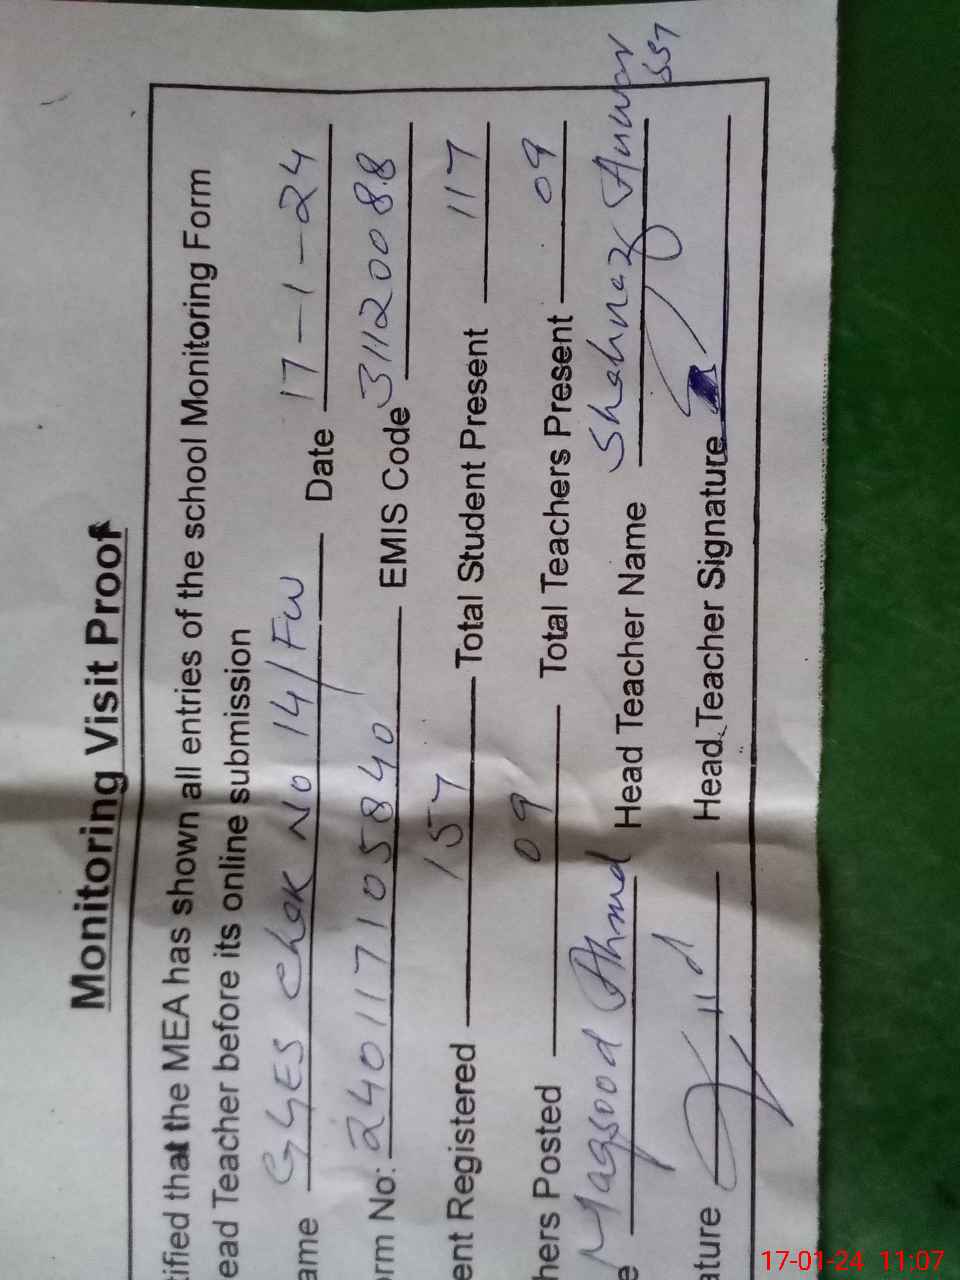 Monitoring Visit Proof
tified that the MEA has shown all entries of the school Monitoring Form
ead Teacher before its online submission
ame GGES Chak No 14/FW Date 17-1-24
orm No: 240117105840 EMIS Code 31120088
ent Registered 157 Total Student Present 117
hers Posted 09 Total Teachers Present 09
e Maqsood Ahmd Head Teacher Name Shahnaz Anwar SST
ature Head Teacher Signature
17-01-24 11:07